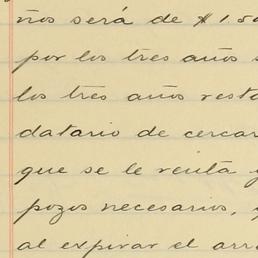 ños será de $1.50
por los tres años
los tres años resta
datario de cercar
que se le renta y
pozos necesarios, y
al expirar el arr